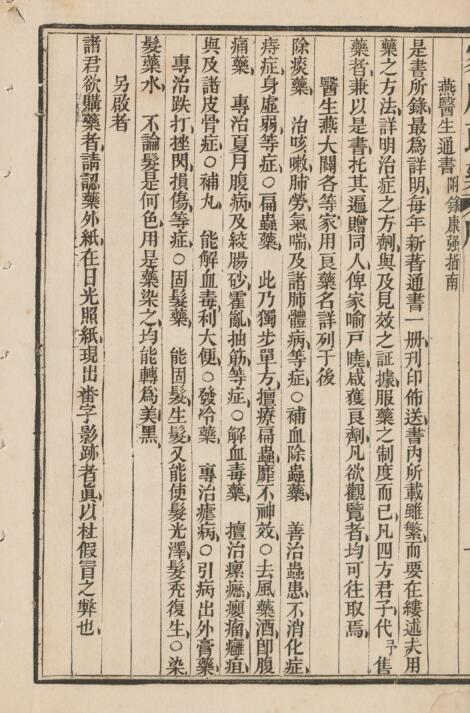 燕醫生通書 附錄康强指南
是書所錄最爲詳明、每年新著通書一册、刊印佈送、書内所載雖繁、而要在縷述夫用
藥之方法、詳明治症之方劑、與及見效之証據、服藥之制度而已、凡四方君子、代予售
藥者、兼以是書托其遍贈同人、俾家喻戸曉、咸獲良劑、凡欲觀覽者、均可往取焉、
醫生燕大闢各等家用良藥名詳列于後
除痰藥　治咳嗽肺勞氣喘及諸肺體病等症○補血除蟲藥　善治蟲患不消化症、
痔症身虛弱等症○扁蟲藥　此乃獨步單方、擅療扁蟲、靡不神效○去風藥酒卽腹
痛藥　專治夏月腹病及絞腸砂霍亂抽筋等症○解血毒藥　擅治瘰癧癭瘤癰疽、
與及諸皮骨症○補丸　能解血毒利大便○發冷藥　專治瘧病○引病出外膏藥
專治跌打挫閃損傷等症○固髮藥　能固髮生髮又能使髮光澤、髮禿復生○染
髮藥水　不論髮是何色、用是藥染之、均能轉爲美黑、
另啟者
諸君欲購藥者、請認藥外紙、在日光照紙、現出番字影跡者眞、以杜假冒之弊也、